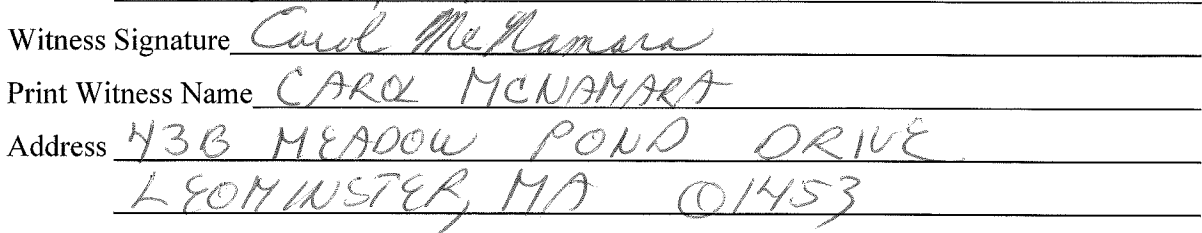 Witness Signature Carol McNamara
Print Witness Name CAROL MCNAMARA
Address 43B MEADOW POND DRIVE
LEOMINSTER, MA 01453